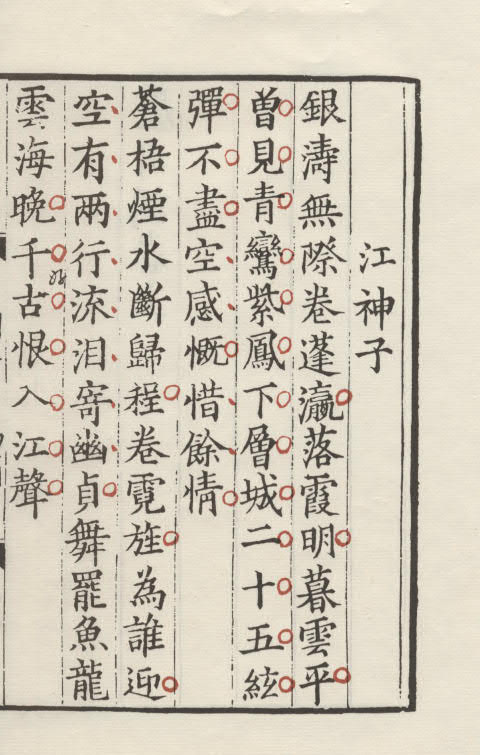 江神子
銀濤無際卷蓬瀛落霞明暮雲平
曾見青鸞紫鳳下層城二十五絃
彈不盡空感慨惜餘情
蒼梧煙水斷歸程卷霓旌為誰迎
空有兩行流泪寄幽貞舞罷魚龍
雲海晚千古恨入江聲